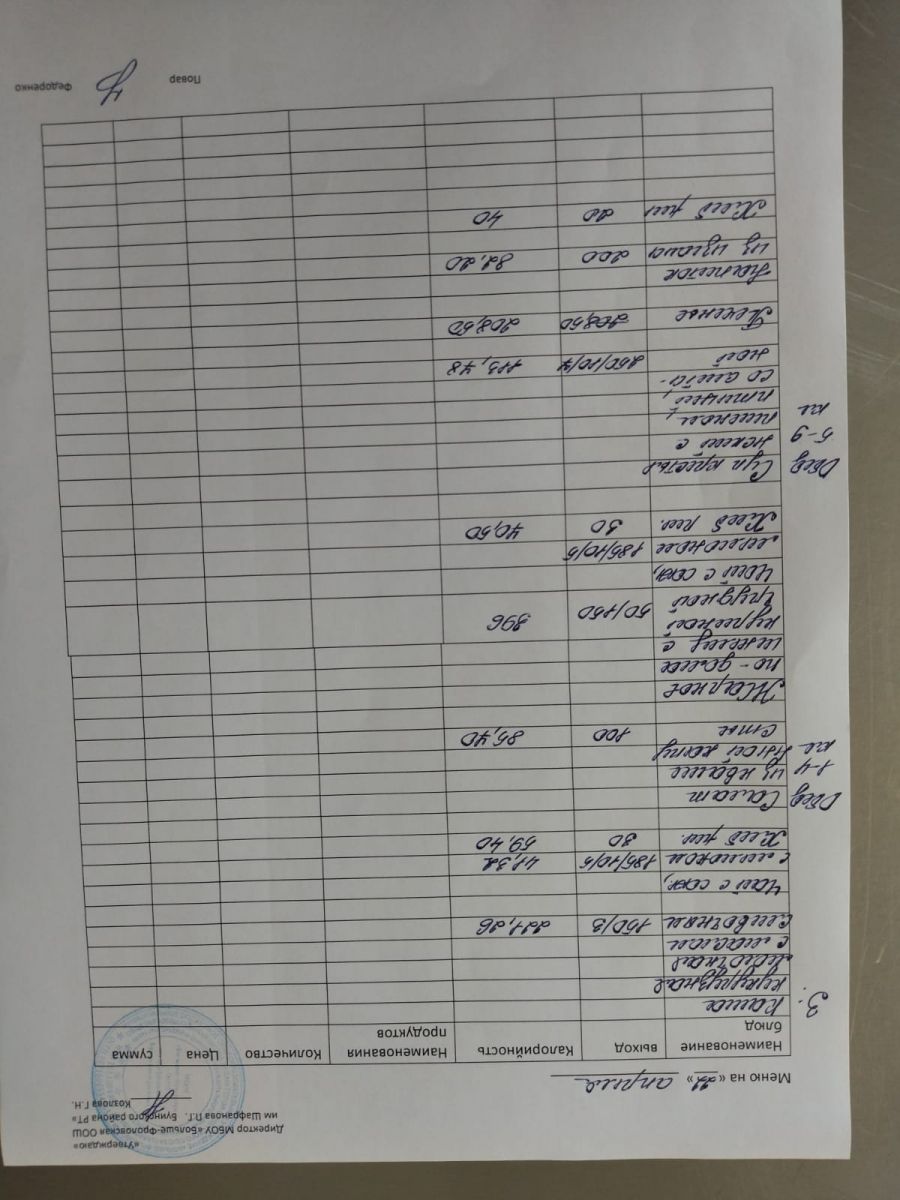 «Утверждаю»
Директор МБОУ «Больше-Фроловская ООШ
им Шафранова П.Г. Буинского района РТ»
Козлова Г.Н.
Меню на «22» апреля
Наименование блюд выход Калорийность Наименования продуктов Количество Цена сумма
З. Каша
кукурузная
молочная
с маслом
сливочным 150/3 221,26
Чай с сах,
с молоком 185/10/5 41,32
Хлеб пш. 30 59,40
Обед Салат
1-4 из кваше
кл нной капу
сты 100 85,40
Жаркое
по-дома
шнему с
куриной 50/150 396
грудкой
Чай с сах,
молоком 185/10/5
Хлеб пш. 30 40,50
Обед Суп крестья
5-9 нский с
кл пшеном,
птицей,
со смета-
ной 250/10/7 113,78
Печенье 208,50 208,50
Напиток
из изюма 200 82,20
Хлеб пш 20 40
Повар Федоренко